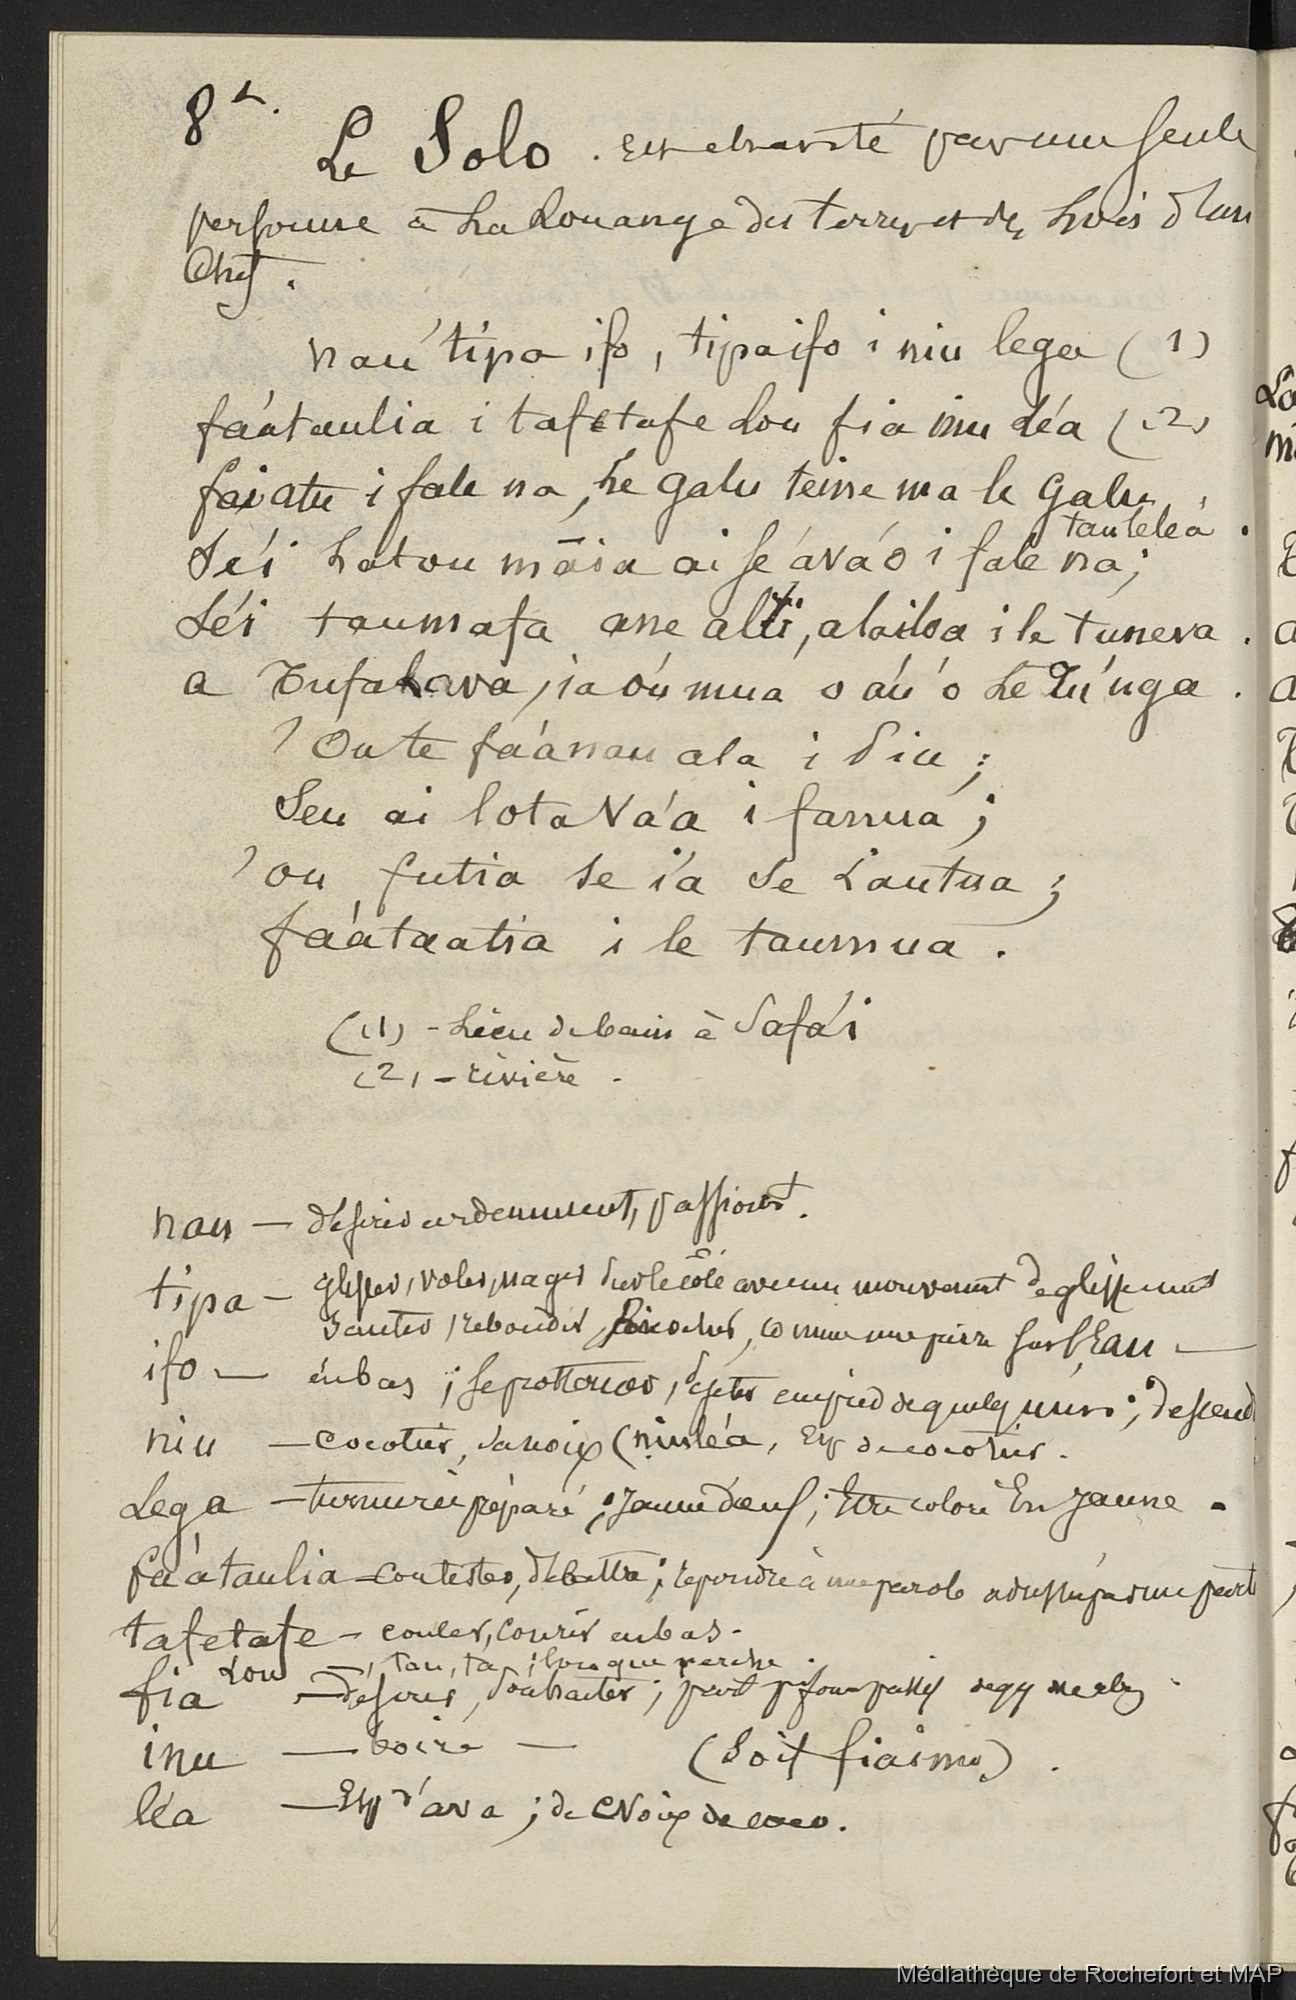 8°.
Le Solo. Est chanté par une seule
personne à la louange des terres et des bois d'un
Chef.
nau tipa ifo, tipa ifo i niu lega (1)
fa'ataulia i tafetafe lou fia inu léa (2)
faiatu i fale na, le galu teine ma le galu
tauleleá.
Se'i latou māsa ai se ává'o i fale na;
Sé'i taumafa ane alii, alailoa i le tuneva.
a Tufakava, ia oú mua o aú o le Tú'nga.
'Ou te fa'anau ala i Siu;
Seu ai lota Va'a i fanua;
'ou futia se i'a se Lautua;
fa'ataatia i le taumua.
(1) - Lieu de bain à Safá'i
(2) - rivière.
nau — désirer ardemment, passiont.
tipa — glisser, voler, nager sur le côté avec un mouvement de glissement
sauter, rebondir, ricocher, comme une pierre sur l'Eau —
ifo — en bas; se prosterner, se jeter au pied de quelqu'un; descend
niu — cocotier, sa noix (niuléa, Esp de cocotier.
Lega — turmeric préparé; jaune d'œuf; Etre coloré En jaune.
fa'ataulia — contester, débattre; répondre à une parole
tafetafe — couler, courir en bas.
Lou —, tau, ta; longue perche.
fia — désirer, souhaiter;
inu — boire — (Soif fiainu).
léa — Esp d'ava; de Noix de coco.
Médiathèque de Rochefort et MAP